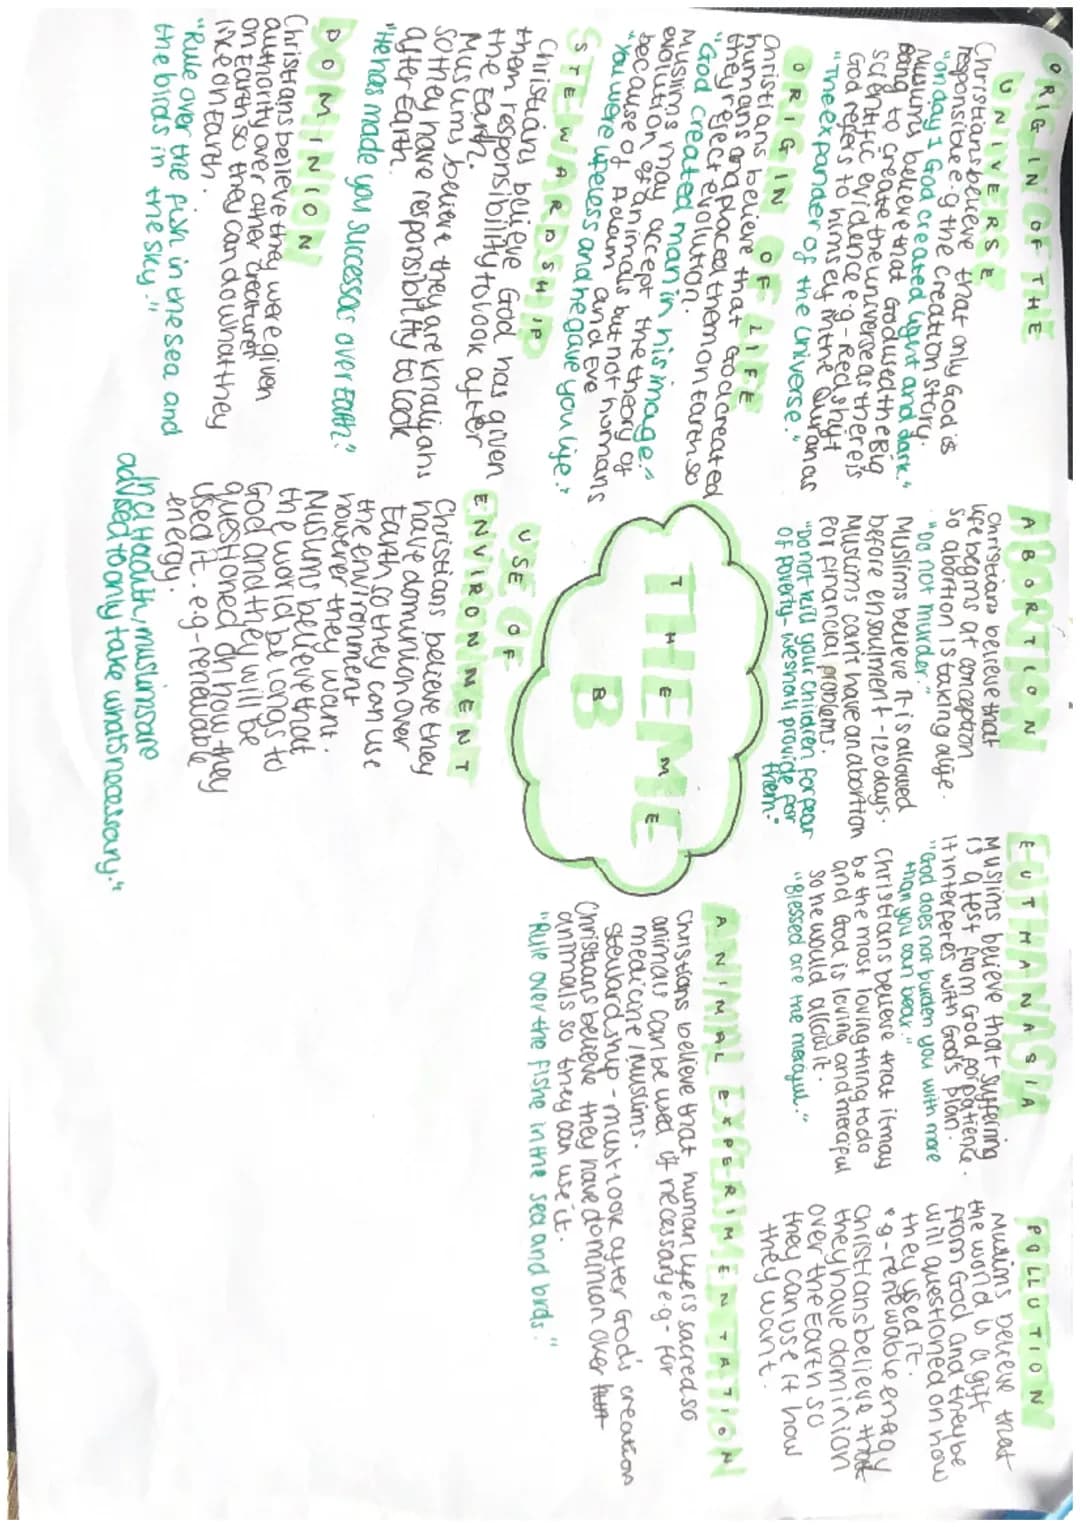 ORIGIN OF THE
UNIVERSE
Christians believe that only God is
responsible e.g the creation story.
"on day 1 God created light and dark."
Muslims believe that God used the Big
Bang to create the universe as there is
scientific evidence e.g - Red shift
God refers to himself in the Quran as
"The expander of the universe."
ORIGIN OF LIFE
Christians believe that God created
humans and placed them on Earth so
they reject evolution.
"God created man in his image."
Muslims may accept the theory of
evolution of animals but not humans
because of Adam and Eve
"You were lifeless and he gave you life."
STEWARDSHIP
Christians believe God has given
them responsibility to look after
the Earth.
Muslims believe they are khralifahs
so they have responsibility to look
after Earth.
"He has made you successors over Earth."
DOMINION
Christians believe they were given
authority over other creatures
on Earth so they can do what they
like on Earth.
"Rule over the fish in the sea and
the birds in the sky."
ABORTION
Christians believe that
life begins at conception
so abortion is taking a life.
"Do not murder."
Muslims believe it is allowed
before ensoulment - 120 days.
Muslims can't have an abortion
for financial problems.
"Do not kill your children for fear
of poverty - we shall provide for
them."
THEME
B
USE OF
ENVIRONMENT
Christians believe they
have dominion over
Earth so they can use
the environment
however they want.
Muslims believe that
the world belongs to
God and they will be
questioned on how they
used it. e.g - renewable
energy.
In a Hadith, muslims are
advised to only take what's necessary."
EUTHANASIA
Muslims believe that suffering
is a test from God for patience.
It interferes with God's plan.
"God does not burden you with more
than you can bear."
Christians believe that it may
be the most loving thing to do
and God is loving and merciful
so he would allow it.
"Blessed are the merciful."
POLLUTION
Muslims believe that
the world is a gift
from God and they be
will questioned on how
they used it.
e.g - renewable enagy
Christians believe that
they have dominion
over the Earth so
they can use it how
they want.
ANIMAL EXPERIMENTATION
Christians believe that human lifers sacred so
animals can be used if necessary e.g - for
medicine / Muslims.
Stewardship - must look after God's creation
Christians believe they have dominion over
animals so they can use it.
"Rule over the fishe in the sea and birds."